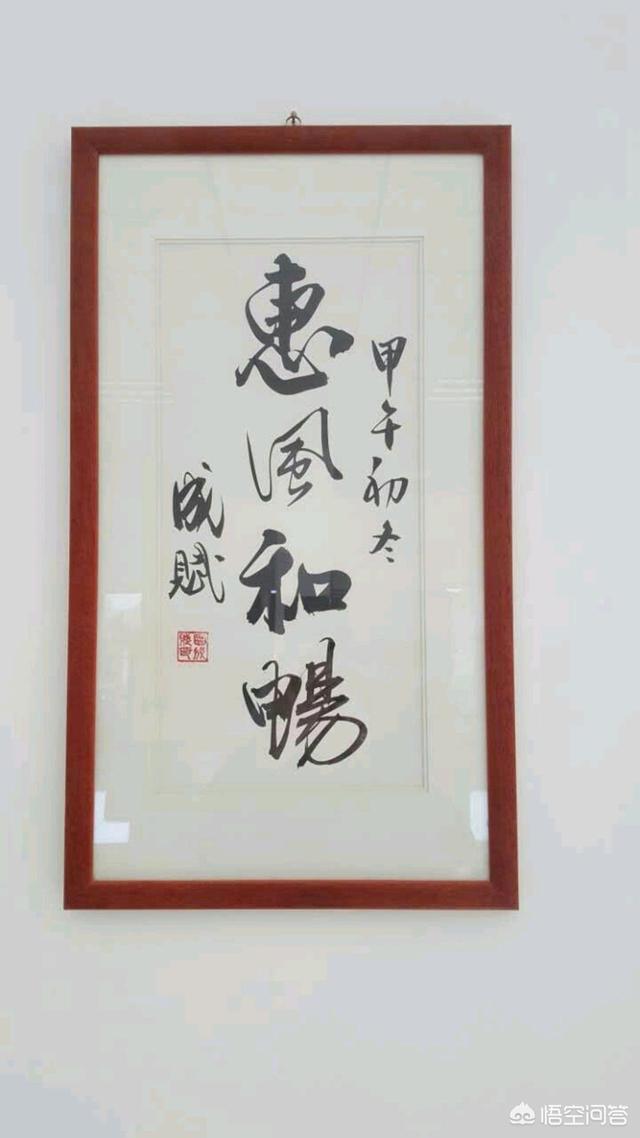 甲午初冬
惠風和暢
成賦
悟空问答